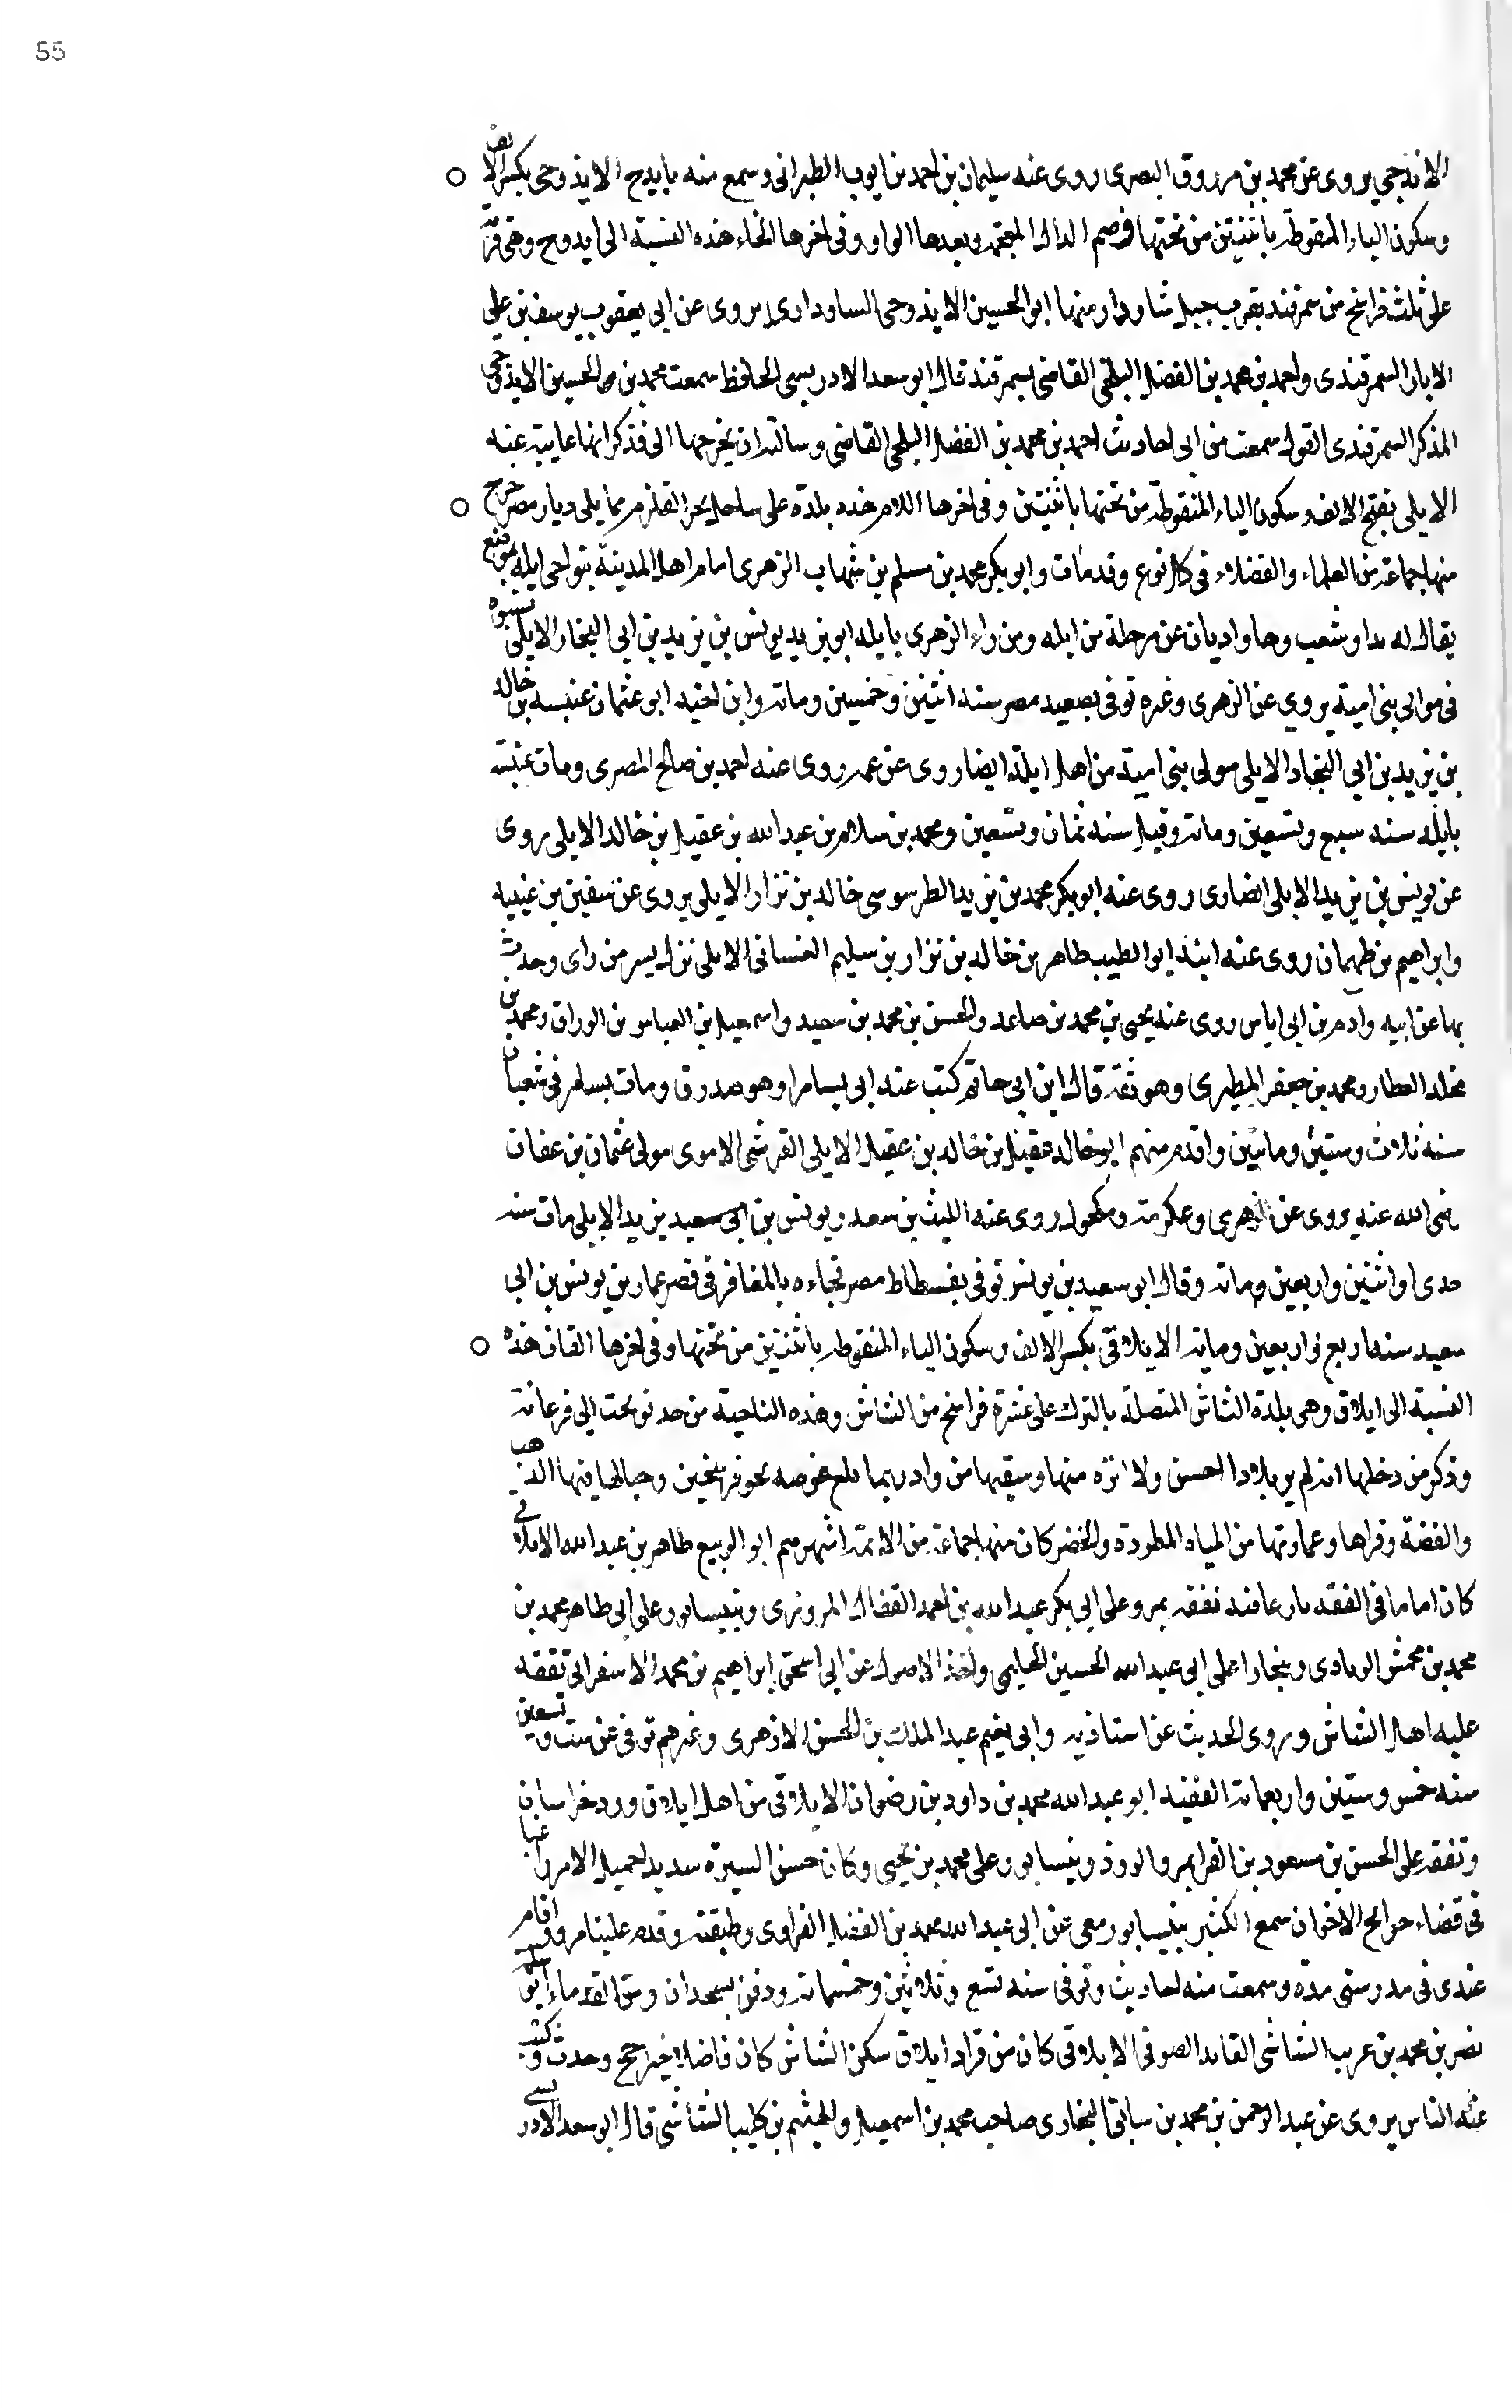 55
الايذجي يروى عن محمد بن مرزوق البصرى روى عنه سليمان بن احمد بن ايوب الطبرانى وسمع منه بايدج الايذوخى بكسر الالف
وسكون الياء المنقوطة باثنتين من تحتها وضم الذال المعجمة وبعدها الواو وفى اخرها الخاء هذه النسبة الى ايذوخ وهى قرية
على ثلث فراسخ من سمرقند بقرب جبل شاودار منها ابو الحسين الايذوخى الساودارى يروى عن ابى يعقوب يوسف بن على
الابار السمرقندى واحمد بن محمد بن الفضل البلخى القاضى بسمرقند قال ابو سعد الادريسى الحافظ سمعت محمد بن الحسين الايذوخى
المذكر السمرقندى القول سمعت من ابى احاديث احمد بن محمد بن الفضل البلخى القاضى وسالته ان يخرجها الى فذكر انها غايبة عنه
الايلى بفتح الالف وسكون الياء المنقوطة من تحتها باثنتين وفى اخرها اللام هذه بلدة على ساحل بحر القلزم مما يلى ديار مصر خرج
منها جماعة من العلماء والفضلاء فى كل نوع وقد مات وابو بكر محمد بن مسلم بن شهاب الزهرى امام اهل المدينة بنواحى ايلة بموضع
يقال له بدا وشعب وهما واديان عن مرحلة من ايله ومن راء الزهرى بايله ابو يزيد يونس بن يزيد بن ابى النجاد الايلى نسبوه
فى موالى بنى امية يروي عن الزهرى وغيره توفى بصعيد مصر سنه اثنتين وخمسين ومائة وابن اخيه ابو عثمان عنبسه بن خالد
بن يزيد بن ابى النجاد الايلى مولى بنى امية من اهل ايلة ايضا روى عن عمه روى عنه احمد بن صالح المصرى ومات عنبسة
بايله سنه سبع وتسعين ومائة وقيل سنه ثمان وتسعين ومحمد بن سلام بن عبد الله بن عقيل بن خالد الايلى روى
عن يونس بن يزيد الايلى ايضا روى عنه ابو بكر محمد بن يزيد الطرسوسى خالد بن نزار الايلى يروى عن سفين بن عيينه
وابراهيم بن طهمان روى عنه ابنه ابو الطيب طاهر بن خالد بن نزار بن سليم الغسانى الايلى نزل بسر من راى وحدث
بها عن ابيه وادم بن ابى اياس روى عنه يحيى بن محمد بن صاعد والحسن بن محمد بن سعيد واسمعيل بن العباس الوراق ومحمد بن
مخلد العطار ومحمد بن جعفر المطيرى وهو ثقة قال ابن ابى حاتم كتب عنه ابى بسامرا وهو صدوق ومات بسامر فى شعبان
سنة ثلاث وستين ومائتين واقدم منهم ابو خالد عقيل بن خالد بن عقيل الايلى القرشى الاموى مولى عثمان بن عفان
رضى الله عنه يروى عن الزهرى وعكرمة ومكحول روى عنه الليث بن سعد ويونس بن ابى سعيد يزيد الايلى مات سنه
احدى او اثنتين واربعين ومائة وقال ابو سعيد بن يونس توفى بفسطاط مصر فجاءه بالمغافر فى قصر عمار بن يونس بن ابى
سعيد سنه اربع واربعين ومايه الايلاقى بكسر الالف وسكون الياء المنقوطه باثنتين من تحتها وفى اخرها القاف هذه
النسبة الى ايلاق وهى بلدة الشاش المتصلة بالترك على عشرة فراسخ من الشاش وهذه الناحية من حد نوبخت الى فرغانة
وذكر من دخلها انه لم ير بلادا احسن ولا انزه منها وسقيها من واد ربما بلغ عرضه نحو فرسخين وجبالها فيها الذهب
والفضة وقراها وعمارتها من المياه المطردة والخضر كان منها جماعة من الائمة اشهرهم ابو الربيع طاهر بن عبد الله الايلاقى
كان اماما فى الفقه بارعا فيه تفقه بمرو على ابى بكر عبد الله بن احمد القفال المروزى وبنيسابور وعلى ابى طاهر محمد بن
محمد بن محمش الزيادى وببخارا على ابى عبد الله الحسين الحليمى واخذ الاصول عن ابى اسحق ابراهيم بن محمد الاسفراينى تفقه
عليه اهل الشاش وروى الحديث عن استاذيه وابى نعيم عبد الملك بن الحسن الازهرى وغيرهم توفى عن ست وتسعين
سنه خمس وستين واربعمائة الفقيه ابو عبد الله محمد بن داود بن رضوان الايلاقى من اهل ايلاق ورد خراسان
وتفقه على الحسن بن مسعود بن الفرا بمرو الروذ وبنيسابور وعلى محمد بن يحيى وكان حسن السيرة سديد جميل الامر راغبا
فى قضاء حوائج الاخوان سمع الكثير بنيسابور معى عن ابى عبد الله محمد بن الفضل الفراوى وطبقته وقدم علينا مرو واقام
عندى فى مدرستى مدة وسمعت منه احاديث وتوفى سنه تسع وثلاثين وخمسمائة ودفن بسجدان ومن القدماء ابو
نصر بن محمد بن عريب الشاشى القايد الصوفى الايلاقى كان من قراد ايلاق سكن الشاش كان فاضلا خيرا حج وحدث وكتب
عنه الناس يروى عن عبد الرحمن بن محمد بن سابق البخارى صاحب محمد بن اسمعيل والهيثم بن كليب الشاشى قال ابو سعد الادريسى